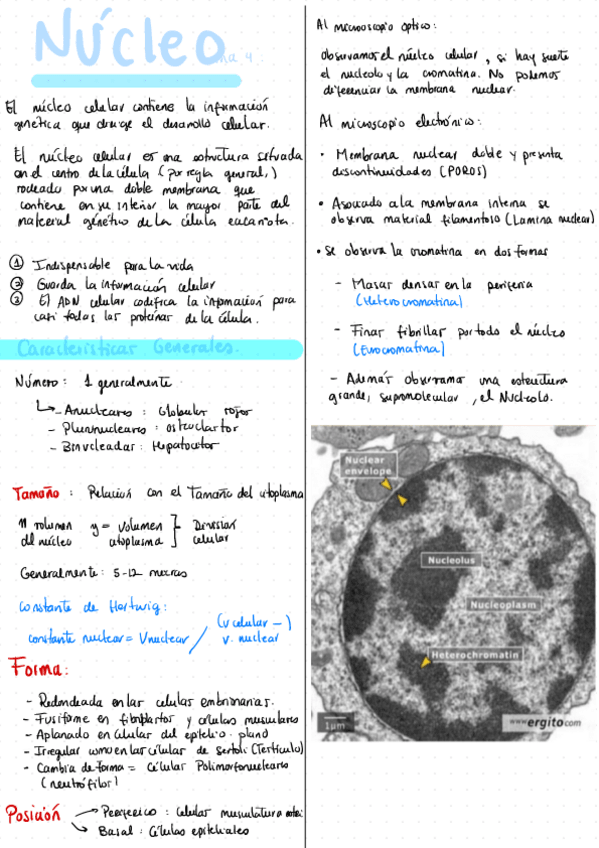 Núcleo
El núcleo celular contiene la información
genética que dirige el desarrollo celular.
El núcleo celular es una estructura situada
en el centro de la célula (por regla general,)
rodeado por una doble membrana que
contiene en su interior la mayor parte del
material genético de la célula eucariota.
① Indispensable para la vida
② Guarda la información celular
③ El ADN celular codifica la información para
casi todas las proteínas de la célula.
Características Generales.
Número: 1 generalmente
Anucleares: Globular rojos
- Plurinucleares: osteoclastos
- Binucleadas: Hepatocitos
Tamaño: Relación con el Tamaño del citoplasma
volumen del núcleo
y = volumen citoplasma
División celular
Generalmente: 5-12 micras
Constante de Hertwig:
constante nuclear = V nuclear / (v celular - v. nuclear)
Forma:
- Redondeada en las celulas embrionarias.
- Fusiforme en fibroblastos y células musculares
- Aplanado en células del epitelio plano
- Irregular como en las células de sertoli (Testículo)
- Cambia de forma = Células Polimorfonucleares
(neutrófilos)
Posición
Periferico: celulas musculatura
Basal: Células epiteliales
Al microscopio óptico:
observamos el núcleo celular, si hay suerte
el nucleolo y la cromatina. No podemos
diferenciar la membrana nuclear.
Al microscopio electrónico:
• Membrana nuclear doble y presenta
discontinuidades (POROS)
• Asociado a la membrana interna se
observa material filamentoso (Lamina nuclear)
• Se observa la cromatina en dos formas
- Masas densas en la periferia
(Heterocromatina)
- Finas fibrillas por todo el núcleo
(Eurocromatina)
- Además observamos una estructura
grande, supramolecular, el Nucleolo.
Nuclear
envelope
Nucleolus
Nucleoplasm
Heterochromatin
1μm
www.ergito.com